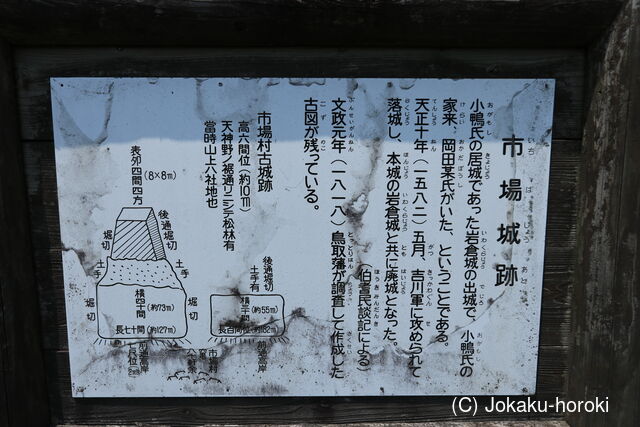 市場城跡
いちばじょうあと
小鴨氏の居城であった岩倉城の出城で、小鴨氏の
家来、岡田某氏がいた、ということである。
天正十年（一五八二）五月、吉川軍に攻められて
落城し、本城の岩倉城と共に廃城となった。
（伯耆民談記による）
文政元年（一八一八）鳥取藩が調査して作成した
古図が残っている。
市場村古城跡
高六間位（約10m）
天神野ノ裾通リニテ松林有
當時山上八社地也
表夘四間四方
（8×8m）
後通堀切
堀切
土手
土手
堀切
横四十間
（約73m）
長七十間
（約127m）
前通岸
後通堀切
土手有
横三十間
（約55m）
長百間位
（約182m）
前通岸
市場村
(C) Jokaku-horoki